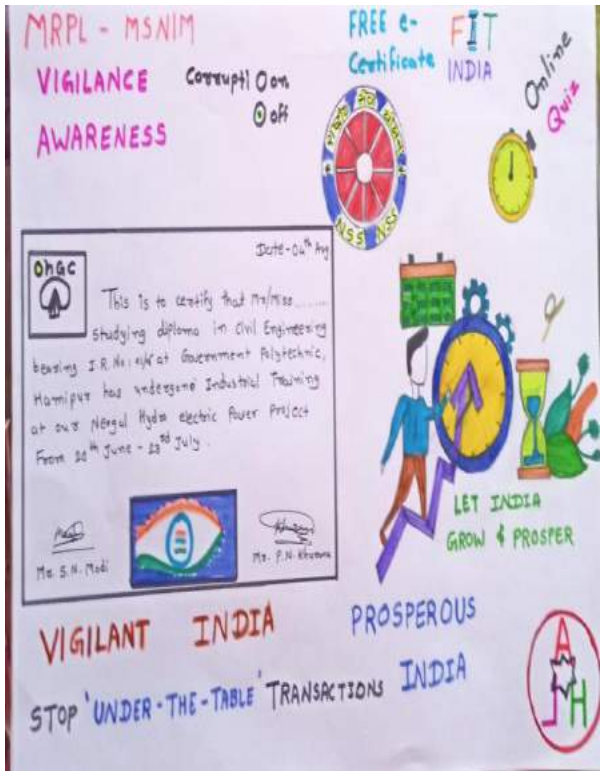 MRPL - MSNIM
VIGILANCE
AWARENESS
Corrupti O on
off
FREE e-
Certificate
FIT
INDIA
Online
Quiz
राष्ट्रीय सेवा योजना
NSS NSS
Date - 04th Aug
ONGC
This is to certify that Mr/Miss........
studying diploma in Civil Engineering
bearing I.R. No: at Government Polytechnic,
Hamipur has undergone Industrial Training
at our Nergal Hydro electric Power Project
From 20th June - 23rd July.
Mr. S.N. Modi
Mr. P.N. Khurana
LET INDIA
GROW & PROSPER
VIGILANT INDIA
PROSPEROUS
INDIA
STOP 'UNDER-THE-TABLE' TRANSACTIONS
A
L H